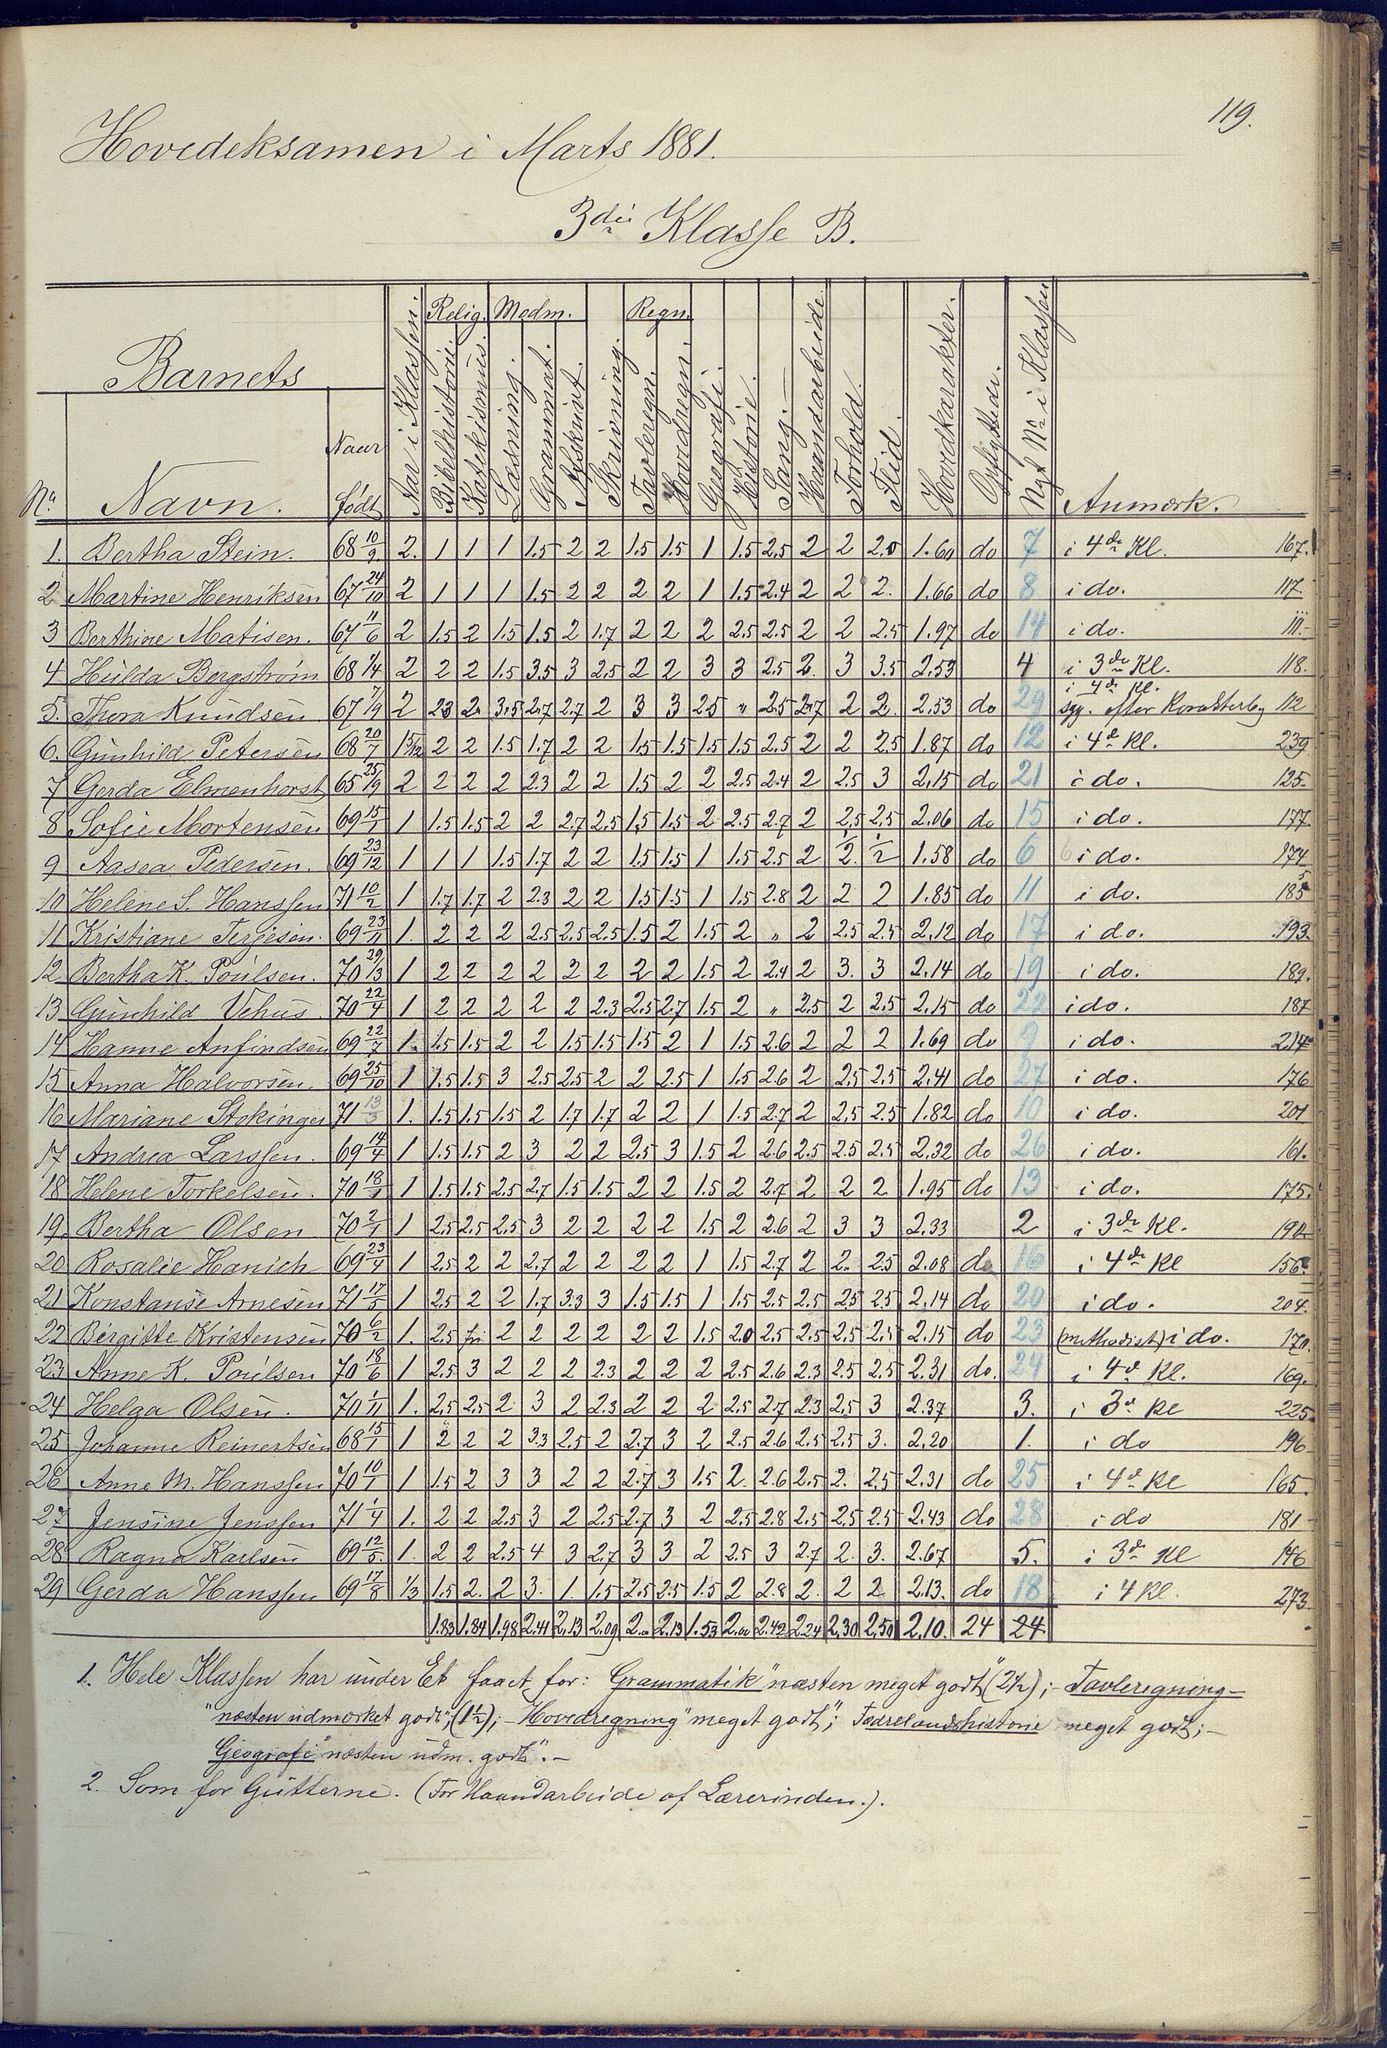 119.
Hovedeksamen i Marts 1881.
3die Klasse B.
Barnets
Relig. Modm. Regn.
No. Navn. Naar født Aar i Klassen. Bibelhistorie. Katekismus. Læsning. Grammat. Nyskrivt. Skrivning. Tavleregn. Hovedregn. Geografi. Historie. Sang. Haandarbeide. Forhold. Flid. Hovedkarakter. Opflyttede. Nyt No. i Klassen Anmærk.
1. Bertha Stein. 68 10/9 2. 1 1 1 1.5 2 2 1.5 1.5 1 1.5 2.5 2 2 2.0 1.60 do 7 i 4de Kl. 167.
2 Martine Henriksen 67 24/10 2 1 1 1 1.5 2 2 2 2 1 1.5 2.4 2 2 2. 1.66 do 8 i do. 117.
3 Berthine Matisen. 67 11/6 2 1.5 2 1.5 1.5 2 1.7 2 2 2 2.5 2.5 2 2 2.5 1.97 do 14 i do. 111.
4 Hulda Bergstrøm 68 1/4 2 2 2 1.5 3.5 3 2.5 2 2 3 3 2.5 2. 3 3.5 2.53 4 i 3de Kl. 118.
5. Thora Knudsen 67 7/9 2 2.3 2. 3.5 2.7 2.7 2 3 3 2.5 " 2.5 2.7 2 2. 2.53 do 29 i 4de Kl. efter 112
6. Gunhild Petersen 68 20/7 1 5/12 2 2 1.5 1.7 2 2 1.5 1.5 1.5 1.5 2.5 2 2 2.5 1.87 do 12 i 4de Kl. 239
7 Gerda Elmenhorst 65 25/9 2 2 2 2 2.3 2 2 1.5 2 2 2.5 2.4 2 2.5 3 2.15 do 21 i do. 125.
8 Sofie Mortensen 69 15/1 1 1.5 1.5 2 2 2.7 2.5 1.5 1.5 2 2.5 2.7 2 2.5 2.5 2.06 do 15 i do. 177.
9 Aasea Pedersen. 69 23/12 1 1 1 1.5 1.7 2 2 1.5 1.5 1 1.5 2.5 2 1/2. 1/2 1.58 do 6 i do. 174
10 Helene S. Hanssen 71 10/2 1 1.7 1.7 2 2.3 2 2 1.5 1.5 1 1.5 2.8 2 2 2 1.85 do 11 i do. 185
11 Kristiane Terjesen. 69 23/11 1. 2 2 2 2.5 2.5 2.5 1.5 2 1.5 2 " 2 2.5 2.5 2.12 do 17 i do. 193.
12. Bertha K. Poulsen. 70 29/3 1 2 2 2 2 2 2 2 2 1.5 2 2.4 2 3. 3 2.14 do 19 i do. 189.
13. Gunhild Vehus. 70 22/4 1 2 2 2 2 2 2.3 2.5 2.7 1.5 2 " 2.5 2 2.5 2.15 do 22 i do. 187
14 Hanne Anfindsen 69 22/7 1. 1.5 1.5 2 2 1.5 1.5 1.5 2 1 1.5 2.6 2 2 2 1.69 do 9 i do. 214
15 Anna Halvorsen. 69 25/10 1 1.5 1.5 3 2.5 2.5 2 2 2.5 1 1.5 2.6 2 2.5 2.5 2.41 do 27 i do. 176
16 Mariane Stokinger 71 13/3 1. 1.5 1.5 1.5 2 1.7 1.7 2 2 1 1.5 2.7 2 2.5 2.5 1.82 do 10 i do. 201
17 Andrea Larssen. 69 14/4 1 1.5 1.5 2 3 2 2 2.5 3 1.5 2 2.6 2.5 2.5 2.5 2.32 do 26 i do. 161.
18 Helene Torkelsen. 70 18/1 1 1.5 1.5 2.5 2.7 1.5 1.5 2 2 1.5 2 2.7 2 2 2 1.95 do 13 i do. 175.
19. Bertha Olsen 70 2/4 1 2.5 2.5 2.5 3 2 2 2 2 1.5 2 2.6 2 3 3 2.33 2 i 3de Kl. 190
20 Rosalie Hanich 69 23/4 1 2.5 2 2 2.7 2 2 2 2 1 1.5 2.7 2 2. 2.5 2.08 do 16 i 4de Kl 156
21 Konstanse Arnesen 71 17/5 1 2.5 2 2 1.7 3.3 3 1.5 1.5 1 1.5 2.5 2.5 2.5 2.5 2.14 do 20 i do. 204.
22 Bergitte Kristensen 70 6/2 1. 2.5 fri 2 2 2 2 2 2 1.5 2.0 2.5 2.5 2.5 2.5 2.15 do 23 (methodist) i do. 170
23 Anne K. Poulsen 70 18/6 1 2.5 3 2 2 2 2.3 2 2 2 2.5 2.6 2.3 2.5 2.5 2.31 do. 24 i 4de Kl. 169.
24 Helga Olsen. 70 1/11 1. 2.5 2.5 2 3 2 2.3 2 2 2 2.5 2.7 2.3 2.5 3 2.37 3. i 3de Kl 225
25 Johanne Reinertsen 68 15/1 1 2 2 2 3.3 2.5 2 2.7 3 2 2.5 2.6 2.5 2.5 3. 2.20 1. i do 196
26 Anne M. Hanssen 70 10/1 1 1.5 2 3 3 2 2 2.7 3 1.5 2. 2.6 2.5 2. 2.5 2.31 do 25 i 4de Kl 165.
27 Jensine Jenssen 71 1/4 1. 2 2 2.5 3 2 2.5 2.7 3 2 2.5 2.8 2.5 2.5 2.5 2.43 do 28 i do 181
28 Ragna Karlsen 69 12/5 1. 2 2 2.5 4 3 2.7 3 3 2 2.5 3 2.7 2. 3. 2.67 5. i 3de Kl 146
29 Gerda Hanssen 69 17/8 1/3 1.5 2. 2 3. 1 1.5 2.5 2.5 1.5 2 2.8 2. 2 2 2.13. do 18 i 4 Kl. 273.
1.83 1.84 1.98 2.41 2.13 2.09 2.. 2.13 1.53 2.00 2.42 2.24 2.30 2.50 2.10. 24 24.
1. Hele Klassen har under Et faaet for: Grammatik "næsten meget godt" (2½); - Tavleregning -
"næsten udmærket godt"; (1½); - Hovedregning "meget godt"; Fædrelandshistorie meget godt; -
Geografi "næsten udm. godt". -
2. Som for Gutterne. (For Haandarbeide af Lærerinden.).